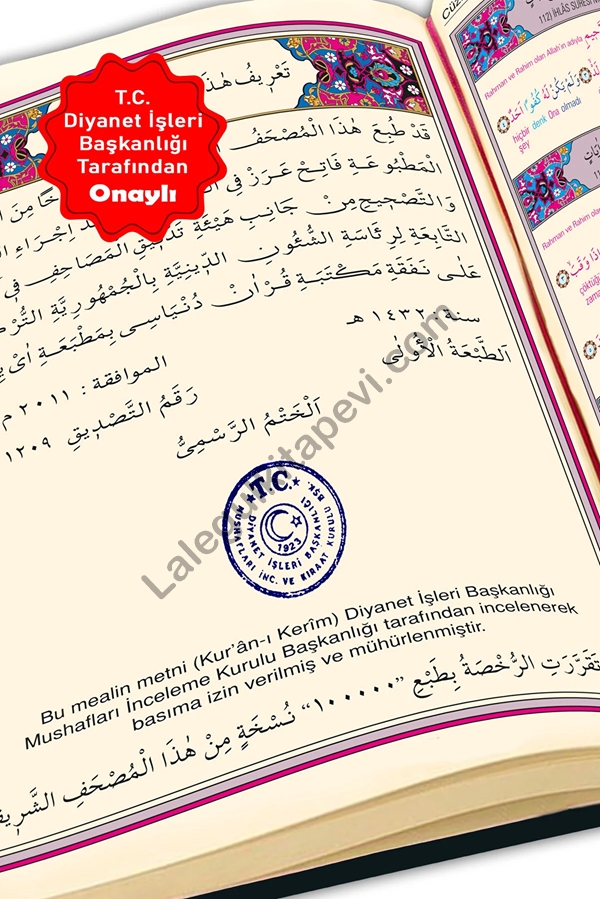 T.C.
Diyanet İşleri
Başkanlığı
Tarafından
Onaylı
تَعْرِيفُ هٰذَا
قَدْ طُبِعَ هٰذَا الْمُصْحَفُ
الْمَطْبُوعَةِ فَاتِحَ عَرَزَ فِي
وَالتَّصْحِيحِ مِنْ جَانِبِ هَيْئَةِ تَدْقِيقِ الْمَصَاحِفِ
التَّابِعَةِ لِرِئَاسَةِ الشُّئُونِ الدِّينِيَّةِ بِالْجُمْهُورِيَّةِ
عَلٰى نَفَقَةِ مَكْتَبَةِ قُرْاٰنْ دُنْيَاسِى بِمَطْبَعَةِ
سنة: ١٤٣٢ هـ
الموافقة: ٢٠١١ م
اَلطَّبْعَةُ الْأُولٰى
رَقَمُ التَّصْدِيقِ ١٢٠٩
اَلْخَتْمُ الرَّسْمِىُّ
T.C.
DİYANET İŞLERİ BAŞKANLIĞI
MUSHAFLARI İNC. VE KIRAAT KURULU BŞK.
1923
Bu mealin metni (Kur'ân-ı Kerîm) Diyanet İşleri Başkanlığı
Mushafları İnceleme Kurulu Başkanlığı tarafından incelenerek
basıma izin verilmiş ve mühürlenmiştir.
تَقَرَّرَتِ الرُّخْصَةُ بِطَبْعِ "١٠٠٠٠٠" نُسْخَةٍ مِنْ هٰذَا الْمُصْحَفِ الشَّرِيفِ
Cüz
112) İHLÂS SURESİ
Rahman ve Rahim olan Allah'ın adıyla
وَلَمْ يَكُنْ لَهُ كُفُوًا اَحَدٌ
hiçbir denk O'na olmadı
şey
Rahman ve Rahim olan
اِذَا وَقَبَ
çöktüğü
zaman
Lalegulkitapevi.com